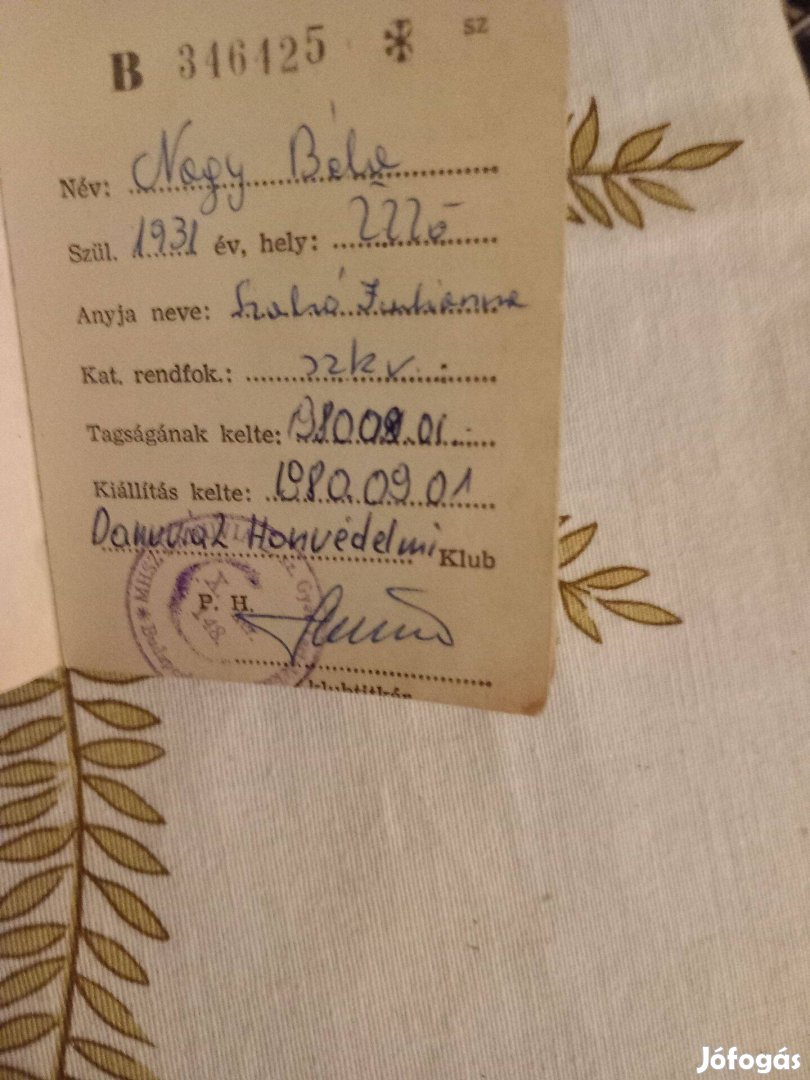 B 346425 * sz
Név: Nagy Béla
Szül. 1931 év, hely: Üllő
Anyja neve: Szabó Julianna
Kat. rendfok.: szkv.
Tagságának kelte: 1980.08.01.
Kiállítás kelte: 1980.09.01
Danuvia 2 Honvédelmi Klub
P. H.
klubtitkár
Jófogás